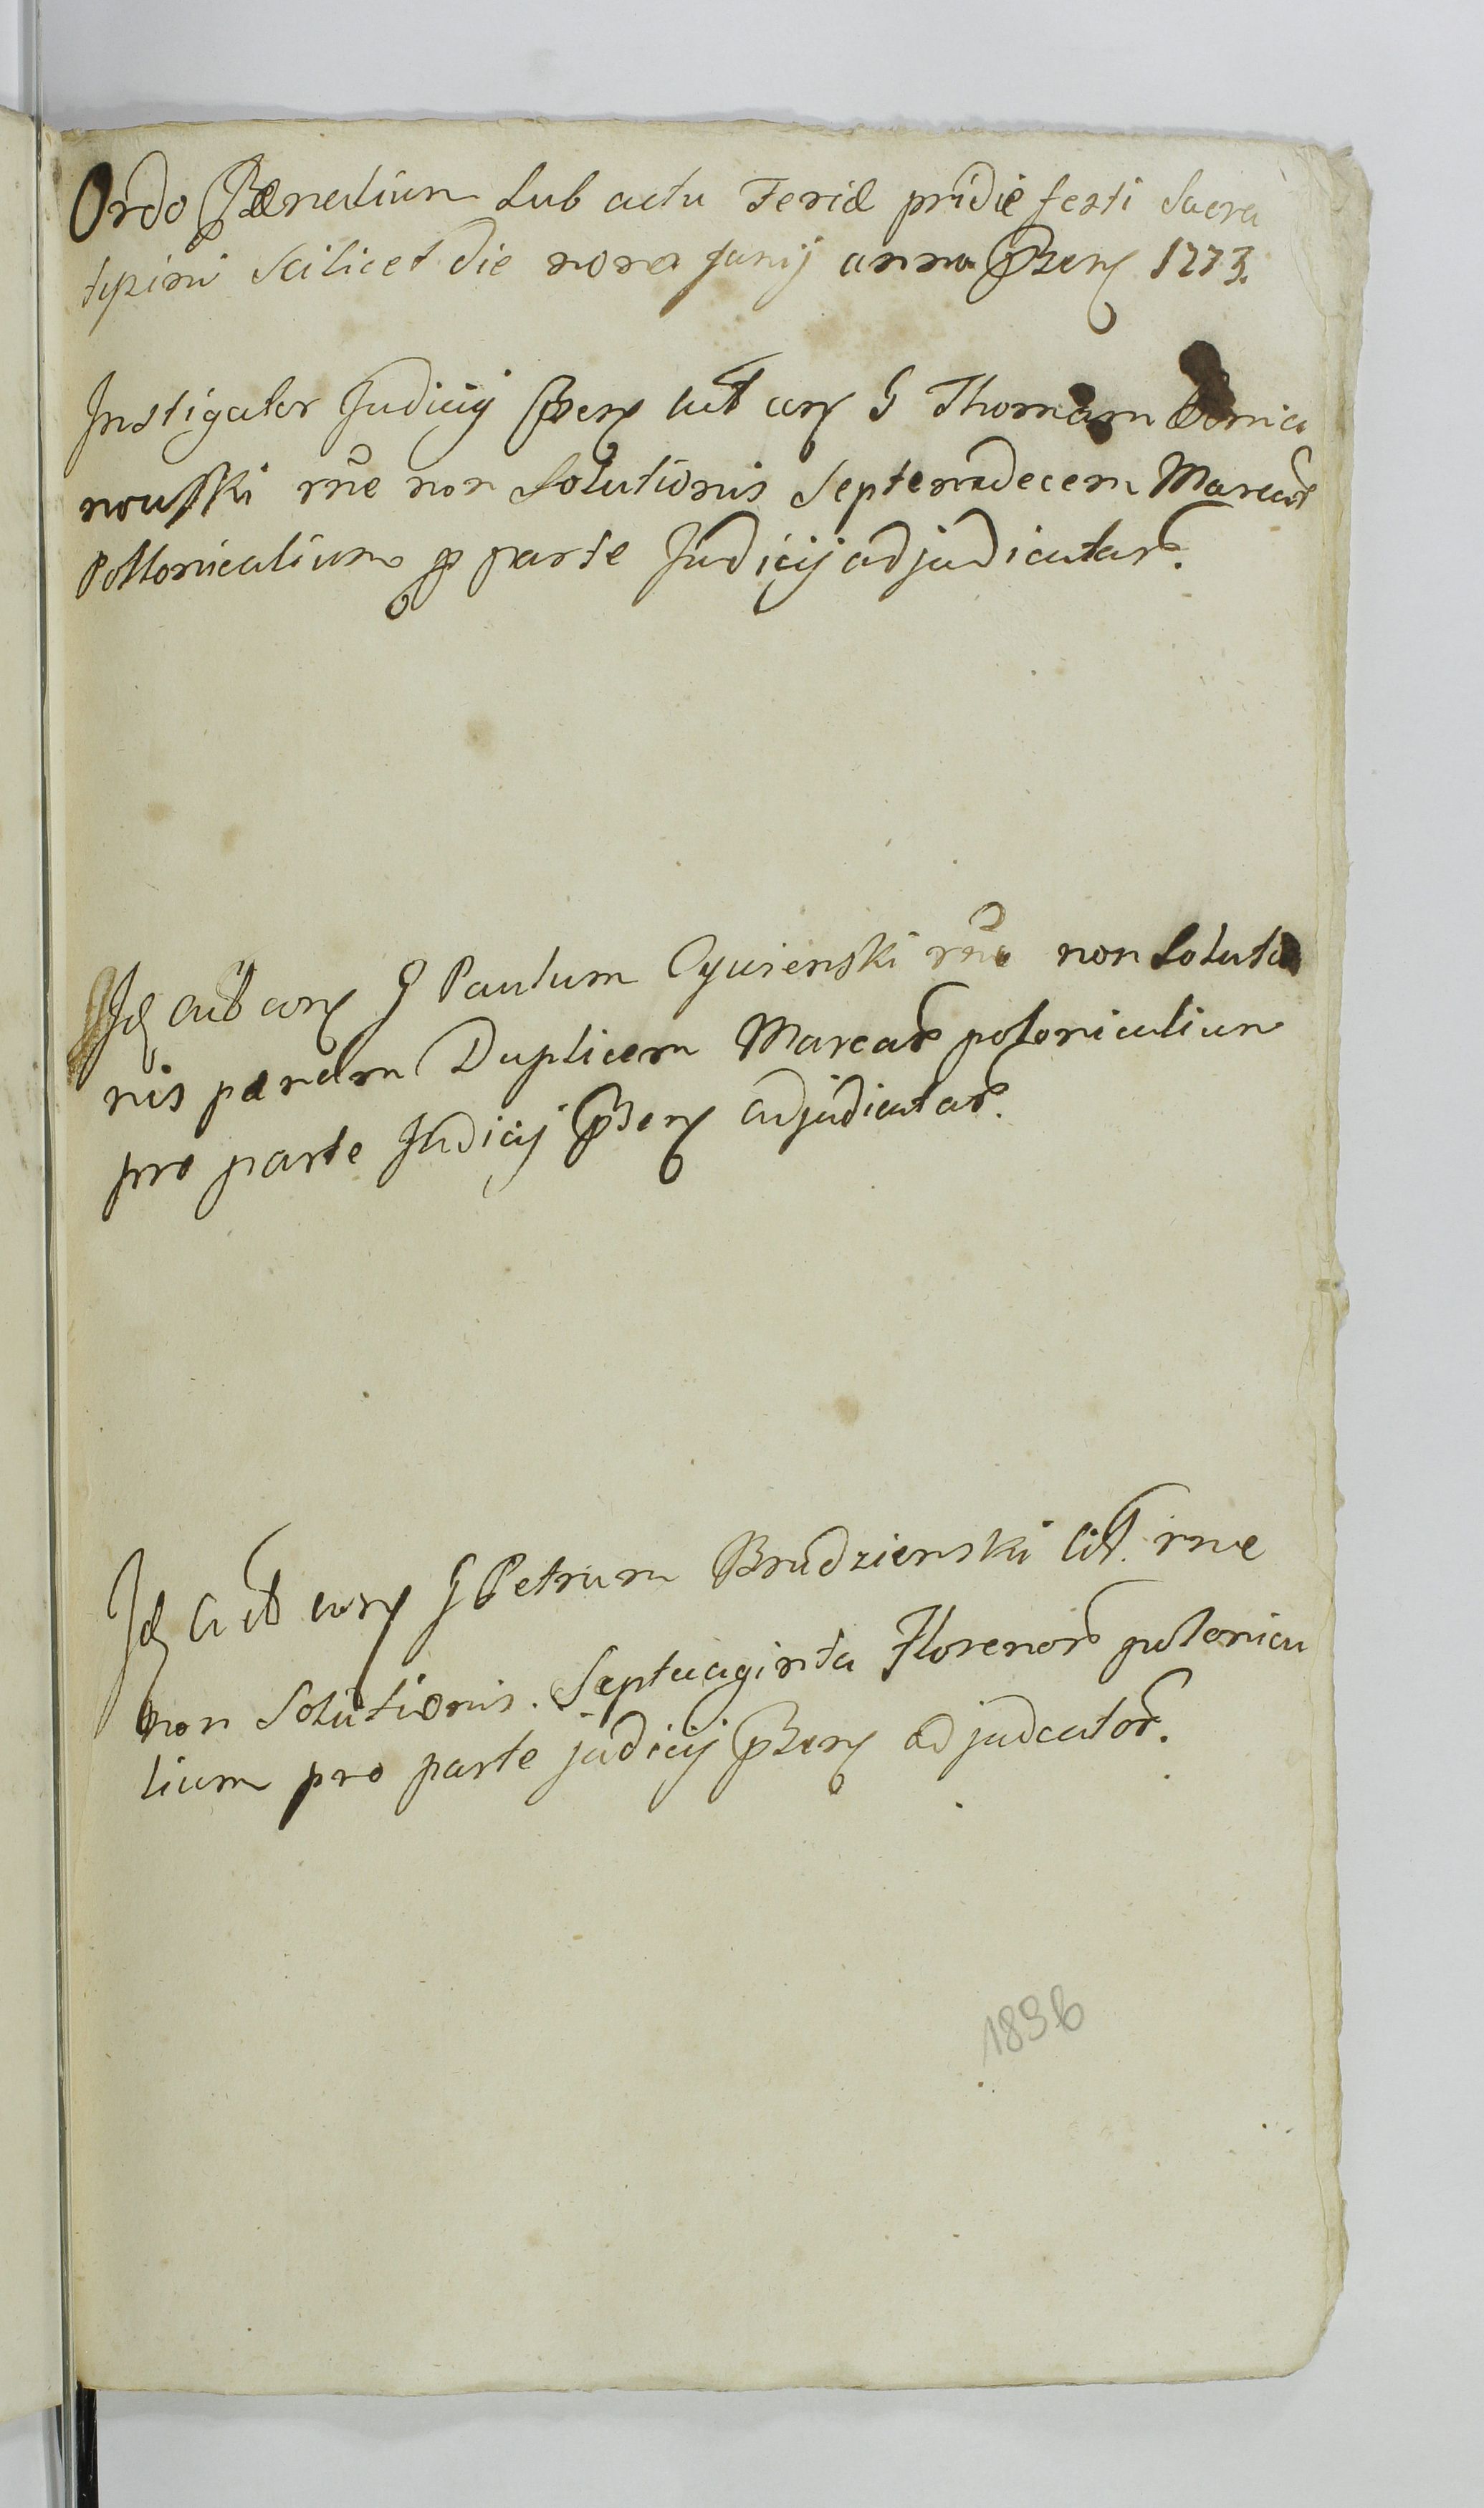 Ordo Pænalium Sub actu Feriæ pridie festi Sacra
tissimi Scilicet die nona Junij anno Præsen 1773.
Instigator Judicij Præsen cit con G Thomam
nouski rne non Solutionis Septemdecem Marcar
Polonicalium p parte Judicij adjudicatar.
Id cit con G Paulum rne non Solutio
nis pænam Duplicem Marcar polonicalium
pro parte Judicij Præsen adjudicatar.
Id cit con G Petrum Brudzienski cit. rne
non Solutionis. Septuaginta Florenor polonica
lium pro parte judicij Præsen adjudcator.
189b